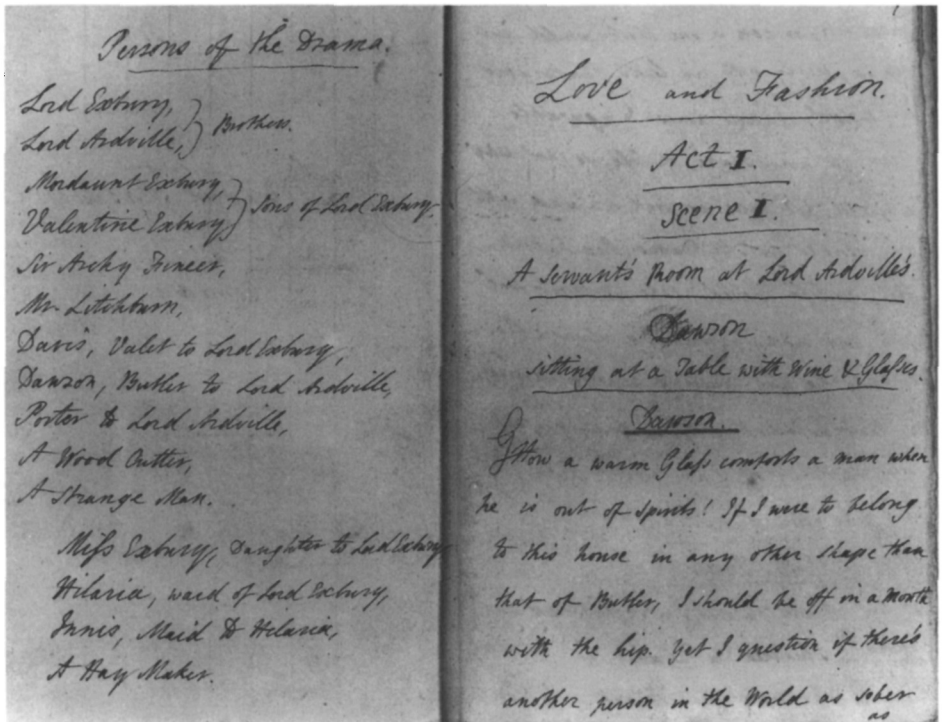 Persons of the Drama.
Lord Exbury,
Lord Ardville, } Brothers.
Mordaunt Exbury,
Valentine Exbury } Sons of Lord Exbury.
Sir Archy Fineer,
Mr. Litchburn,
Davis, Valet to Lord Exbury,
Dawson, Butler to Lord Ardville,
Porter to Lord Ardville,
A Wood Cutter,
A Strange Man.
Miſs Exbury, Daughter to Lord Exbury
Hilaria, ward of Lord Exbury,
Innis, Maid to Hilaria,
A Hay Maker.
Love and Fashion.
Act I.
Scene I.
A Servant's Room at Lord Ardville's.
Dawson
sitting at a Table with Wine & Glaſses.
Dawson.
How a warm Glaſs comforts a man when
he is out of spirits! If I were to belong
to this house in any other shape than
that of Butler, I should be off in a month
with the hip. Yet I question if there's
another person in the World as sober
as